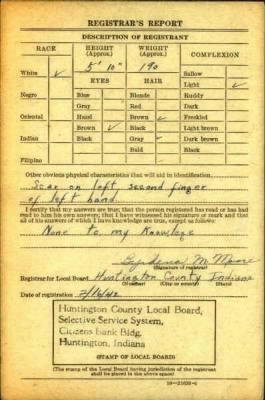 REGISTRAR'S REPORT
DESCRIPTION OF REGISTRANT
RACE HEIGHT (Approx.) WEIGHT (Approx.) COMPLEXION
White ✓ 5' 10" 190 Sallow
EYES HAIR Light ✓
Negro Blue Blonde Ruddy
Gray Red Dark
Oriental Hazel Brown ✓ Freckled
Brown ✓ Black Light brown
Indian Black Gray ✓ Dark brown
Bald Black
Filipino
Other obvious physical characteristics that will aid in identification
Scar on left second finger
of left hand.
I certify that my answers are true; that the person registered has read or has
had read to him his own answers; that I have witnessed his signature or mark and that
all of his answers of which I have knowledge are true, except as follows:
None to my Knowledge
M. Moore
(Signature of registrar)
Registrar for Local Board Huntington County Indiana
(Number) (City or county) (State)
Date of registration 2/16/42
Huntington County Local Board,
Selective Service System,
Citizens Bank Bldg.
Huntington, Indiana
(STAMP OF LOCAL BOARD)
(The stamp of the Local Board having jurisdiction of the registrant
shall be placed in the above space.)